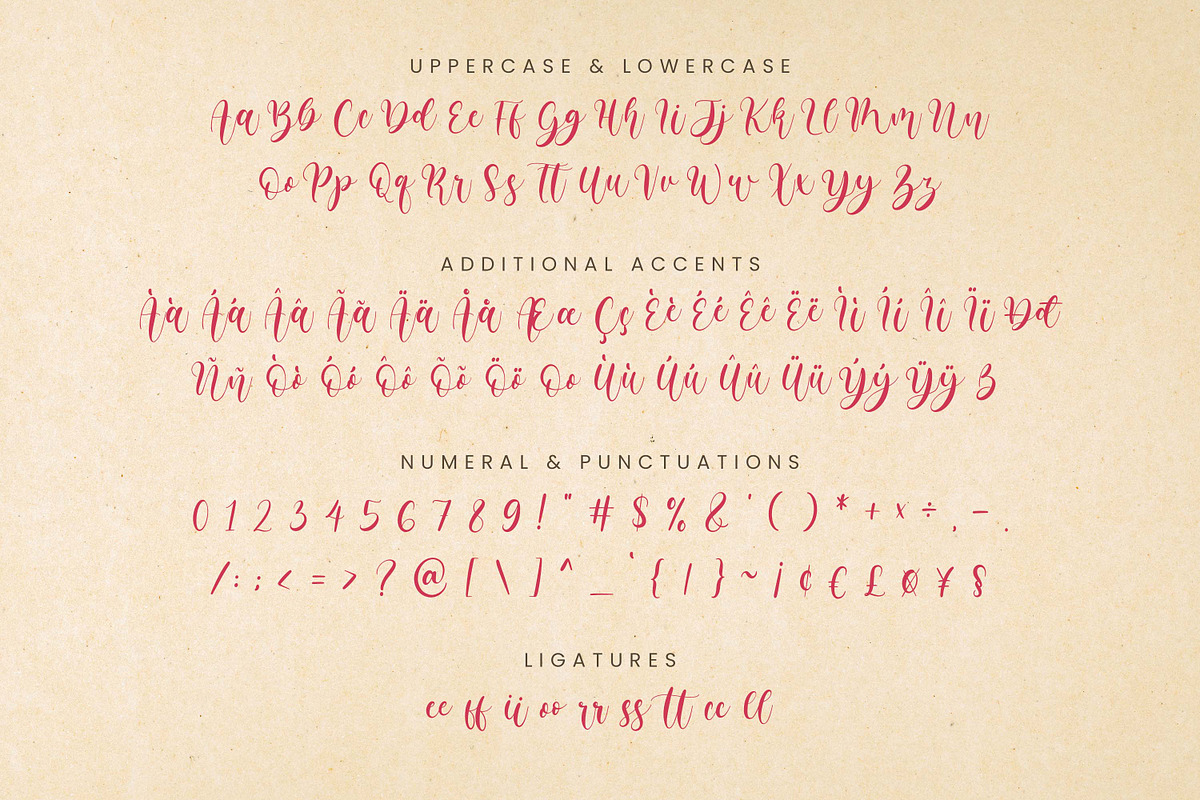 UPPERCASE & LOWERCASE
Aa Bb Cc Dd Ee Ff Gg Hh Ii Jj Kk Ll Mm Nn
Oo Pp Qq Rr Ss Tt Uu Vv Ww Xx Yy Zz
ADDITIONAL ACCENTS
Àà Áá Ââ Ãã Ää Åå Ææ Çç Èè Éé Êê Ëë Ìì Íí Îî Ïï Đđ
Ññ Òò Óó Ôô Õõ Öö Oo Ùù Úú Ûû Üü Ýý Ÿÿ
NUMERAL & PUNCTUATIONS
0 1 2 3 4 5 6 7 8 9 ! " # $ % & ' ( ) * + × ÷ , - .
/ : ; < = > ? @ [ \ ] ^ _ ` { | } ~ ¡ ¢ € £ ¤ ¥ §
LIGATURES
ee ff ii oo rr ss tt cc ll